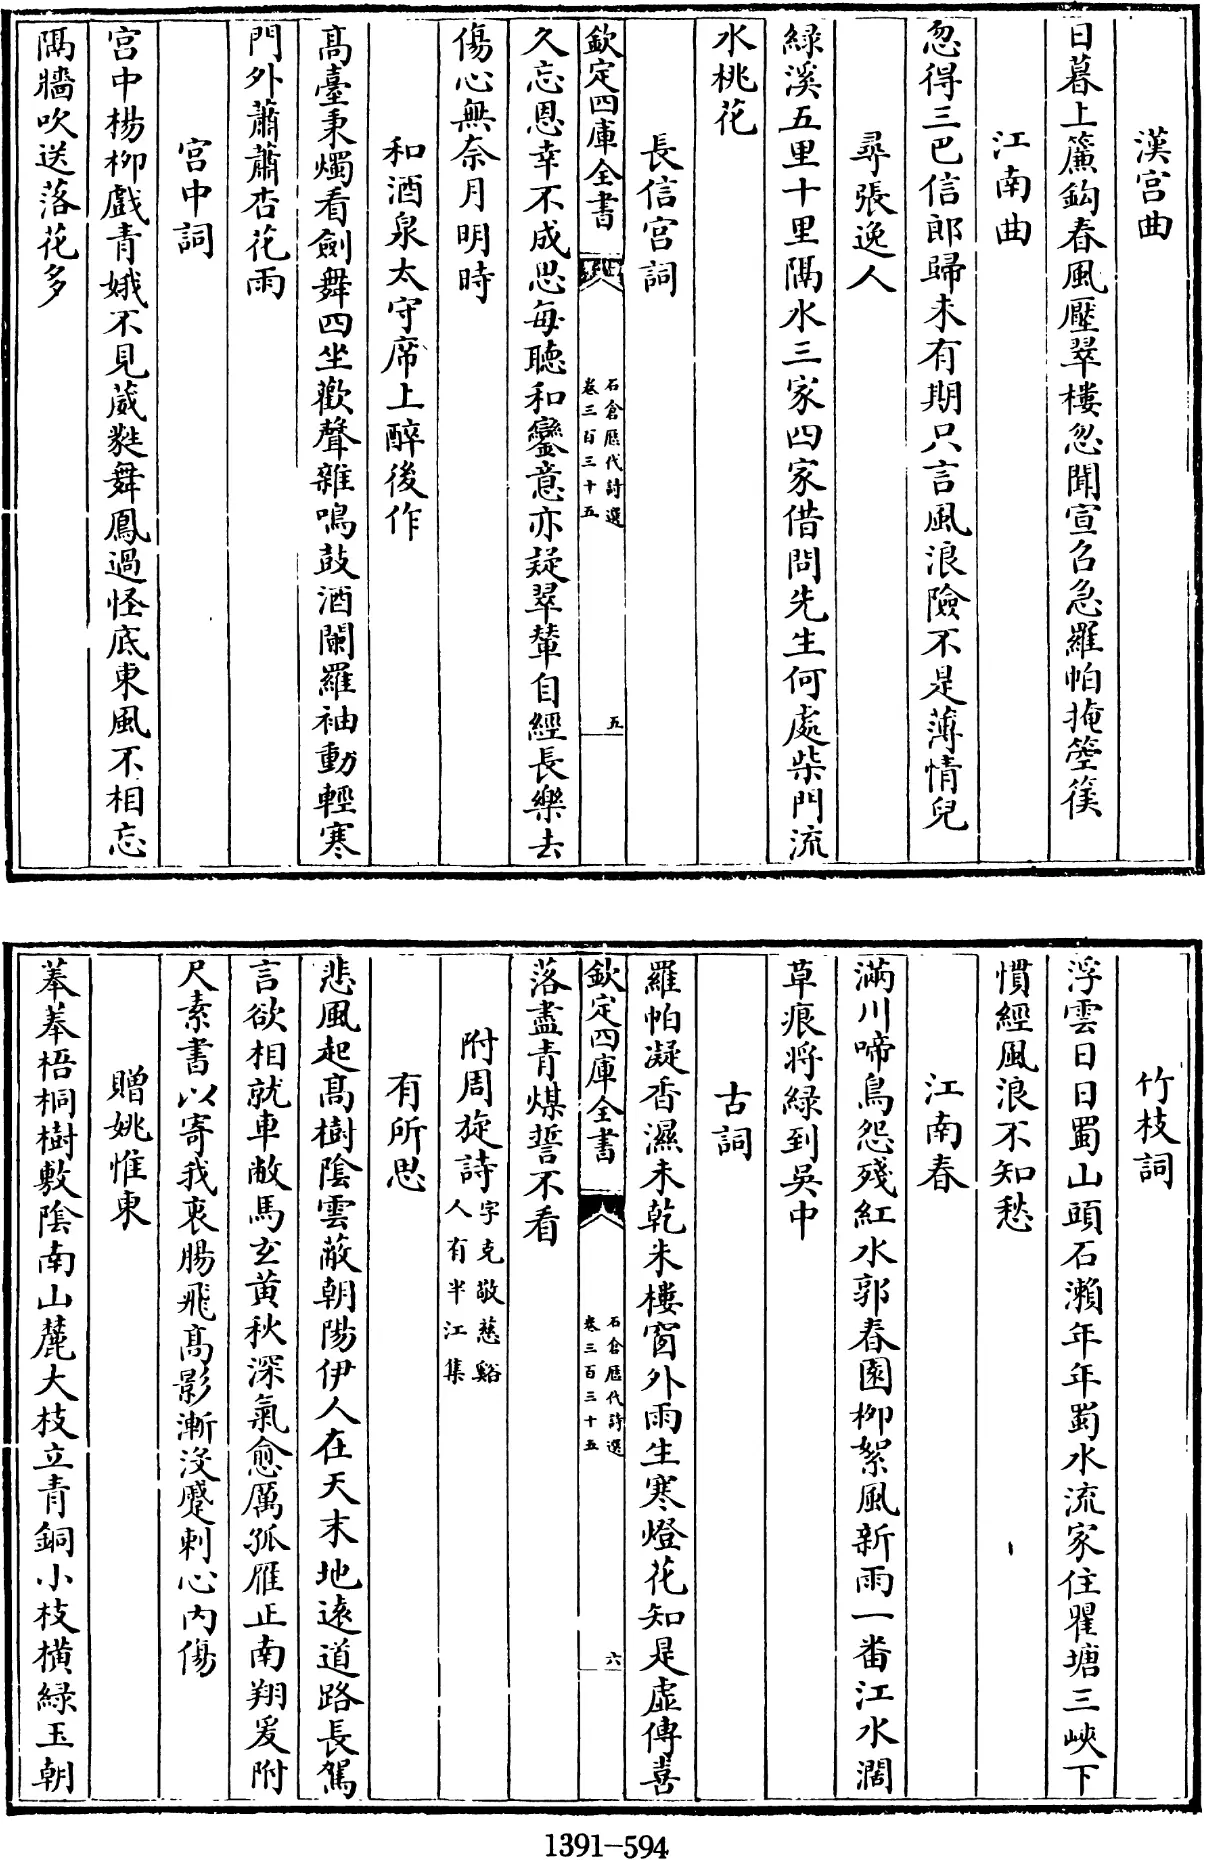 漢宫曲
日暮上簾鈎春風壓翠樓忽聞宣召急羅帕掩箜篌
江南曲
忽得三巴信郎歸未有期只言風浪險不是薄情兒
尋張逸人
緑溪五里十里隔水三家四家借問先生何處柴門流
水桃花
長信宫詞
欽定四庫全書
石倉歴代詩選
卷三百三十五
五
久忘恩幸不成思每聽和鑾意亦疑翠輦自經長樂去
傷心無奈月明時
和酒泉太守席上醉後作
髙臺秉燭看劍舞四坐歡聲雜鳴鼓酒闌羅袖動輕寒
門外蕭蕭杏花雨
宫中詞
宫中楊柳戲青娥不見葳蕤舞鳳過怪底東風不相忘
隔牆吹送落花多
竹枝詞
浮雲日日蜀山頭石瀨年年蜀水流家住瞿塘三峽下
慣經風浪不知愁
江南春
滿川啼鳥怨殘紅水郭春園柳絮風新雨一番江水濶
草痕将緑到吳中
古詞
羅帕凝香濕未乾朱樓窗外雨生寒燈花知是虚傳喜
欽定四庫全書
石倉歴代詩選
卷三百三十五
六
落盡青煤誓不看
附周旋詩字克敬慈谿
人有半江集
有所思
悲風起髙樹陰雲蔽朝陽伊人在天末地逺道路長駕
言欲相就車敝馬玄黄秋深氣愈厲孤雁正南翔爰附
尺素書以寄我衷腸飛髙影漸没蹙刺心内傷
贈姚惟東
菶菶梧桐樹敷陰南山麓大枝立青銅小枝横緑玉朝
1391-594